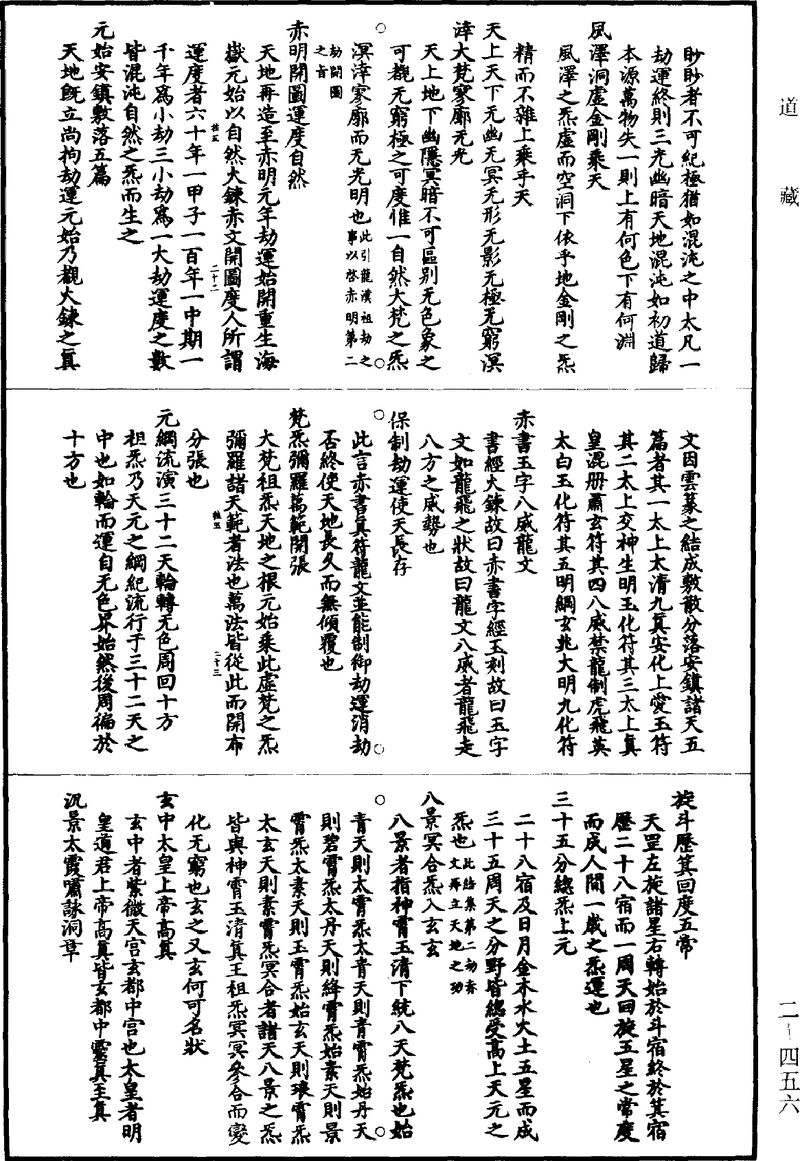 道藏
眇眇者不可紀極猶如混沌之中太凡一
劫運終則三光幽暗天地混沌如初道歸
本源萬物失一則上有何色下有何淵
風澤洞虛金剛乘天
風澤之炁虛而空洞下依乎地金剛之炁
精而不雜上乘乎天
天上天下无幽无冥无形无影无極无窮溟
涬大梵寥廓无光
天上地下幽隱冥暗不可區別无色象之
可觀无窮極之可度惟一自然大梵之炁
溟涬寥廓而无光明也此引龍漢祖劫之事以啓赤明第二
劫開圖之旨
赤明開圖運度自然
天地再造至赤明元年劫運始開重生海
嶽元始以自然火鍊赤文開圖度人所謂
運度者六十年一甲子一百年一中期一
千年爲小劫三小劫爲一大劫運度之數
皆混沌自然之炁而生之
元始安鎮敷落五篇
天地旣立尚拘劫運元始乃觀火鍊之眞
文因雲篆之結成敷散分落安鎮諸天五
篇者其一太上太清九眞安化上愛玉符
其二太上交神生明玉化符其三太上眞
皇混册肅玄符其四八威禁龍制虎飛英
太白玉化符其五明綱玄兆大明九化符
赤書玉字八威龍文
書經火鍊故曰赤書字經玉刻故曰玉字
文如龍飛之狀故曰龍文八威者龍飛走
八方之威勢也
保制劫運使天長存
此言赤書眞符龍文並能制御劫運消劫
否終使天地長久而無傾覆也
梵炁彌羅萬範開張
大梵祖炁天地之根元始乘此虛梵之炁
彌羅諸天範者法也萬法皆從此而開布
分張也
元綱流演三十二天輪轉无色周回十方
祖炁乃天元之綱紀流行于三十二天之
中也如輪而運自无色界始然後周徧於
十方也
旋斗歷箕回度五常
天罡左旋諸星右轉始於斗宿終於箕宿
歷二十八宿而一周天回旋五星之常度
而成人間一歲之炁運也
三十五分總炁上元
二十八宿及日月金木水火土五星而成
三十五周天之分野皆總受高上天元之
炁也此結集第二劫赤文再立天地之功
八景冥合炁入玄玄
八景者指神霄玉清下統八天梵炁也始
青天則太霄炁太青天則青霄炁始丹天
則碧霄炁太丹天則絳霄炁始素天則景
霄炁太素天則玉霄炁始玄天則琅霄炁
太玄天則素霄炁冥合者諸天八景之炁
皆與神霄玉清眞王祖炁冥冥參合而變
化无窮也玄之又玄何可名狀
玄中太皇上帝高眞
玄中者紫微天宮玄都中宮也太皇者明
皇道君上帝高眞皆玄都中靈眞至眞
汎景太霞嘯詠洞章
二—四五六